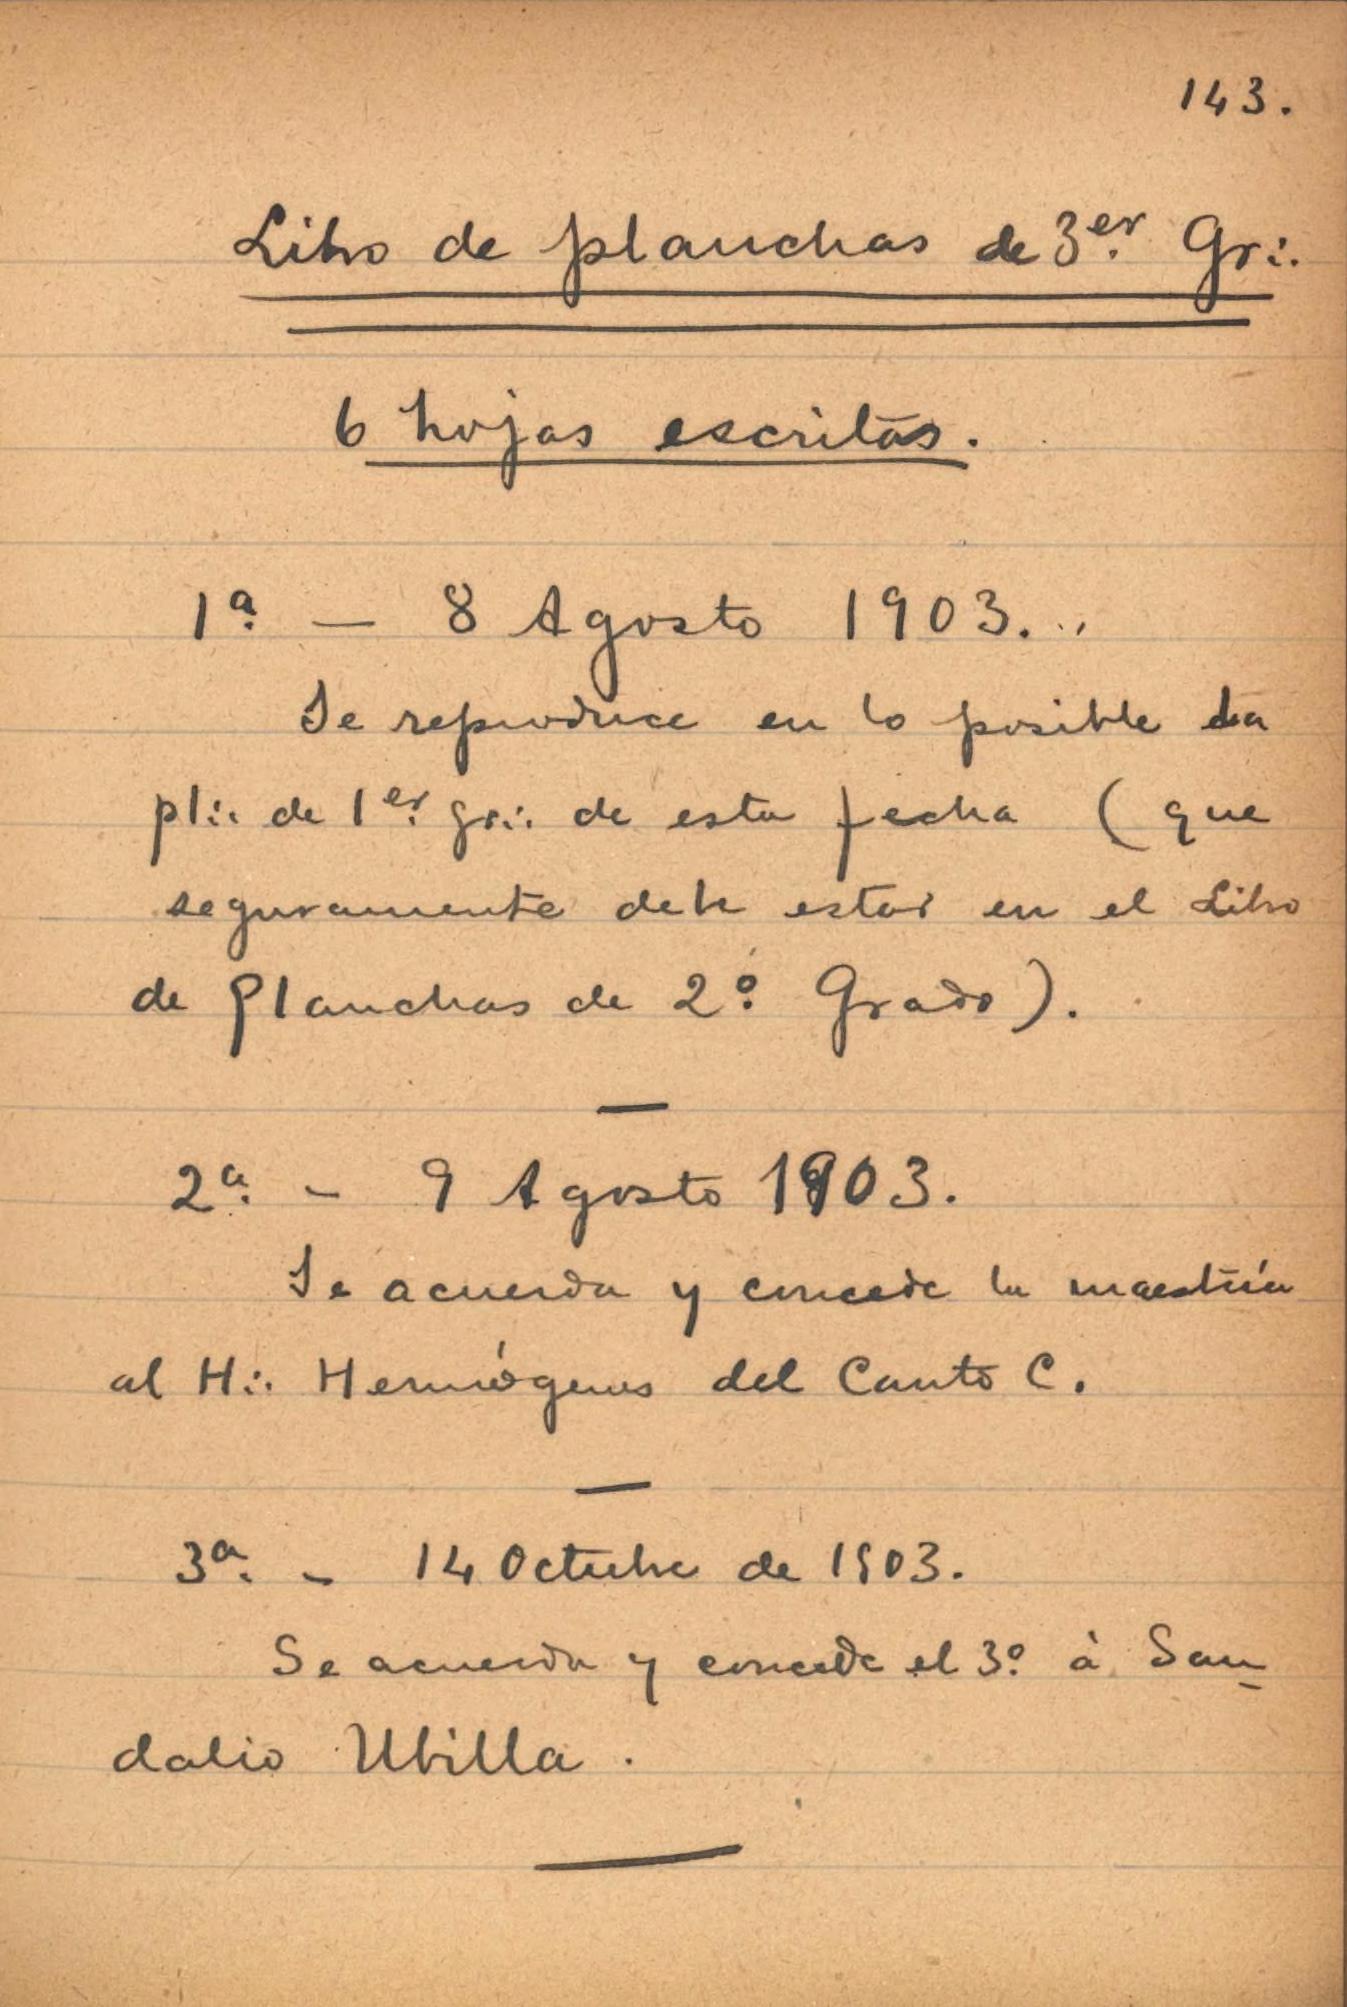 143.
Libro de planchas de 3er. Gr∴
6 hojas escritas.
1ª. — 8 Agosto 1903.
Se reproduce en lo posible la
pl∴ de 1er. gr∴ de esta fecha (que
seguramente debe estar en el Libro
de Planchas de 2º. Grado).
—
2ª. - 9 Agosto 1903.
Se acuerda y concede la maestría
al H∴ Hermógenes del Canto C.
—
3ª. - 14 Octubre de 1903.
Se acuerda y concede el 3º. à San-
dalio Ubilla.